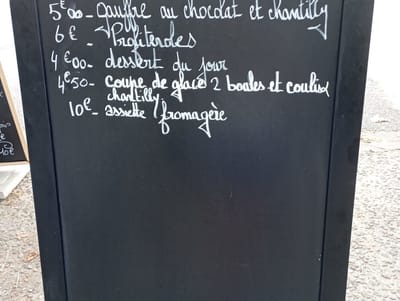 5€00 - gauffre au chocolat et chantilly
6€ - Profiteroles
4€00 - dessert du jour
4€50 - coupe de glace 2 boules et coulis
chantilly
10€ - assiette fromagère